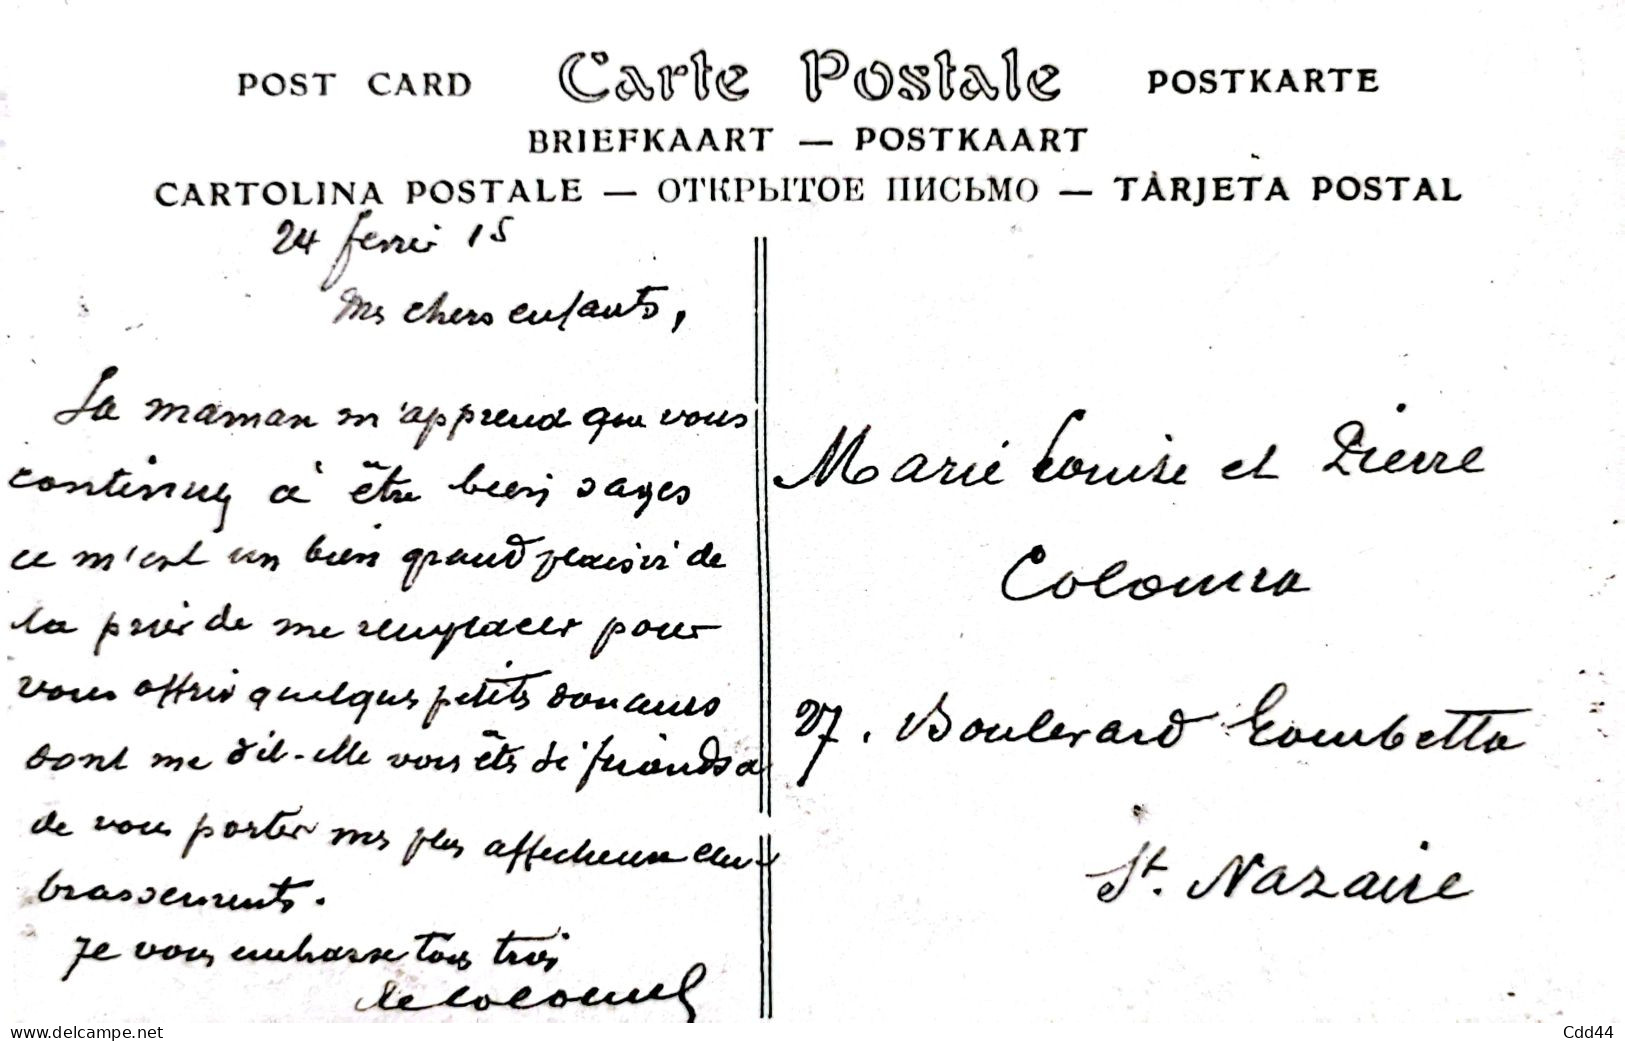 POST CARD Carte Postale POSTKARTE
BRIEFKAART — POSTKAART
CARTOLINA POSTALE — ОТКРЫТОЕ ПИСЬМО — TARJETA POSTAL
24 fevrier 15
Mes chers enfants,
La maman m'apprend que vous
continuez à être bien sages
ce m'est un bien grand plaisir de
la prier de me remplacer pour
vous offrir quelques petits
dont me dit-elle vous êtes si friands
de vous porter mes plus affectueux em-
brassements.
Je vous embrasse tous trois
Marie Louise et Pierre
27, Boulevard Gambetta
St. Nazaire
www.delcampe.net
Cdd44